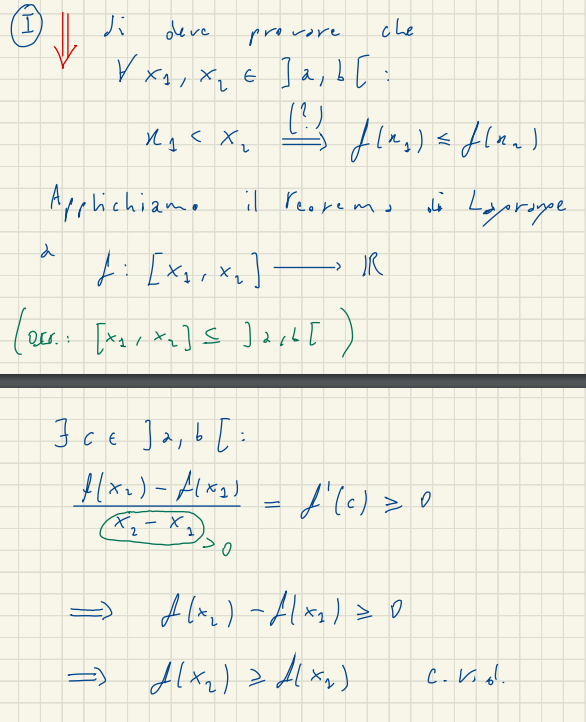 I ⇓ si deve provare che
∀ x₁, x₂ ∈ ]a, b[ :
x₁ < x₂ (?)⟹ f(x₁) ≤ f(x₂)
Applichiamo il teorema di Lagrange
a f : [x₁, x₂] ⟶ ℝ
(oss.: [x₁, x₂] ⊆ ]a, b[ )
∃ c ∈ ]a, b[ :
(f(x₂) − f(x₁)) / (x₂ − x₁) = f'(c) ≥ 0
> 0
⟹ f(x₂) − f(x₁) ≥ 0
⟹ f(x₂) ≥ f(x₂) c.v.d.